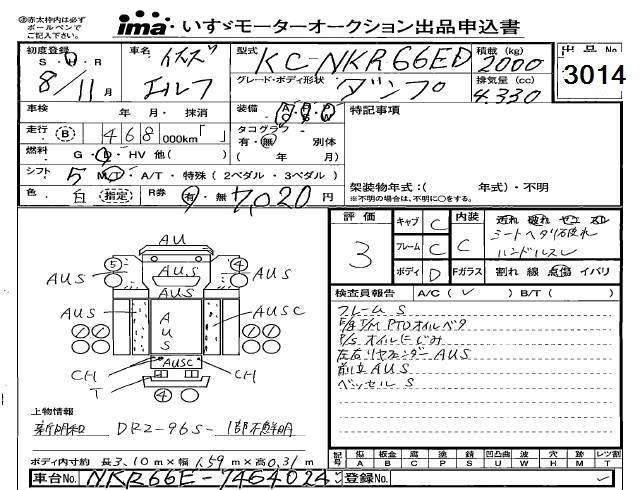 ㊟赤太枠内は必ず
ボールペンで
ご記入下さい。
ima いすゞモーターオークション出品申込書
初度登録 S・H・R 8/11月
車名 イスズ エルフ
型式 KC-NKR66ED
グレード・ボディ形状 ダンプ
積載 (kg) 2000
排気量 (cc) 4.330
出品No 3014
車検 年・月・抹消
走行 B 468 000km「 」
装備 A/C P/S P/W
タコグラフ
有・無 別体
( 年 月)
特記事項
燃料 G・D・HV 他( )
シフト 5 MT・A/T・特殊 (2ペダル・3ペダル)
色 白 指定
R券 有・無 7,020 円
架装物年式:( 年式)・不明
※不明の場合は、不明に○をする。
評価 3
キャブ C
フレーム C
ボディ D
内装 C
Fガラス 割れ 線 点傷 イバリ
汚れ 破れ ヤニ スレ
シートヘタリ破れ
ハンドルスレ
検査員報告 A/C(✓) B/T( )
フレーム S
E/B T/M PTOオイルベタ
P/S オイルにじみ
左右リヤフェンダー AUS
前立 AUS
ベッセル S
AU
5 4
AUS AUS AUS
AUS
AUS AUS AUSC
AUSC
CH CH
T 4
上物情報
新明和 DR2-96S- 1部不鮮明
ボディ内寸約 長3.10m×幅1.59m×高0.31m
記号 傷 A 板金 B 腐 C 塗 P 錆 S 凹凸曲 U 波 W 穴 H 跡 M レツ割 T
車台No. NKR66E-7464024
登録No.